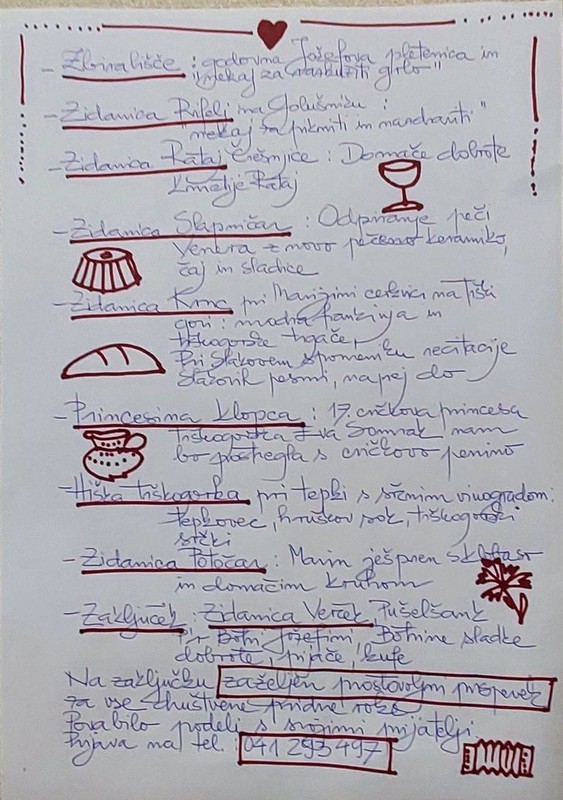 - Zbirališče : godovna Jožefova pletenica in
"nekaj za razkužiti grlo"
- Zidanica Rifelj na Golušniku :
"nekaj za pikniti in nazdraviti"
- Zidanica Rataj Črešnjice : Domače dobrote
kmetije Rataj
- Zidanica Slapničar : Odpiranje peči
Ventra z novo pečeno keramiko,
čaj in sladice
- Zidanica Krnc pri cerkvici na Tiški
gori : modra frankinja in
tiškogorske
Pri Slakovem spomeniku recitacije
Slakovih pesmi, napej do
- Princesina klopca : 17. cvičkova princesa
tiškogorska Eva Somrak nam
bo postregla s cvičkovo penino
- Hiška tiškogorka pri tepki s srčnim vinogradom:
tepkovec, hruškov sok, tiškogorski
srčki
- Zidanica Potočar : ješpren s klobaso
in domačim kruhom
- Zaključek : Zidanica Verček, Pušelšank
Pr' Botri Jožefini, Botrine sladke
dobrote, pijače, kufe
Na zaključku zaželjen prostovoljni prispevek
za vse društvene pridne roke
Povabilo podeli s svojimi prijatelji.
Prijava na tel. : 041 293 497